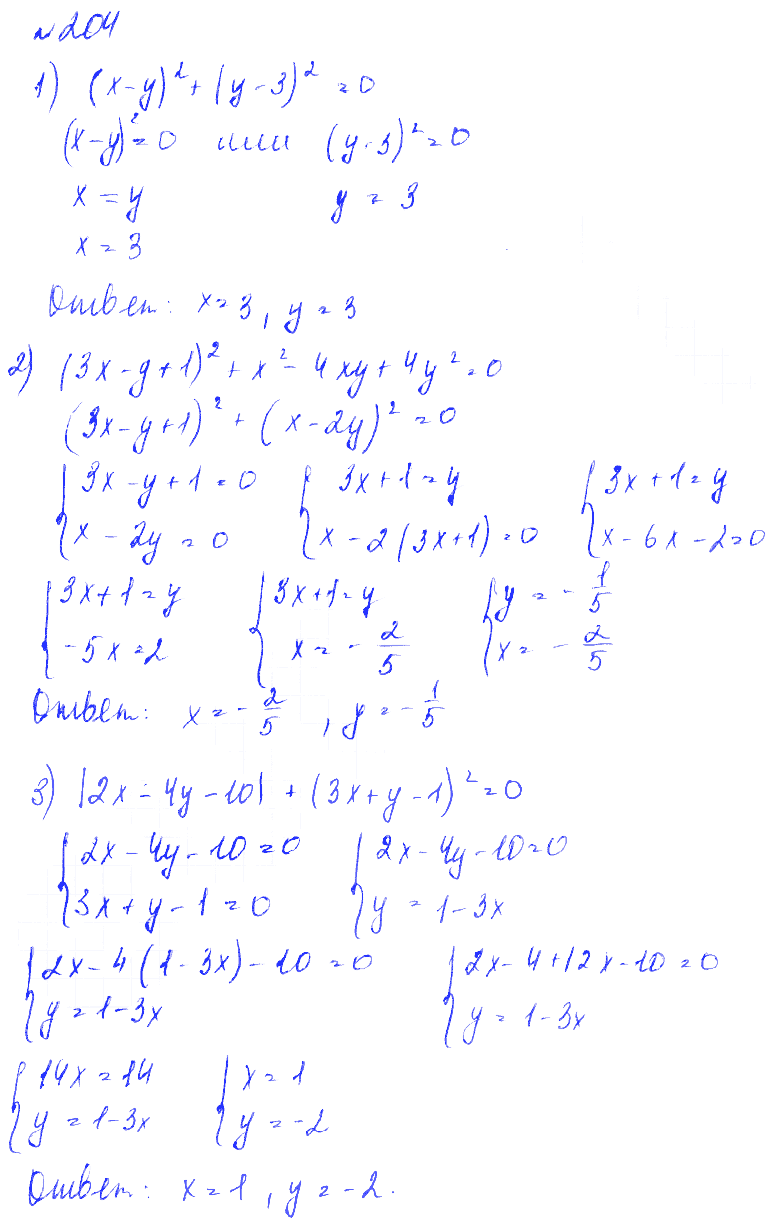 № 204
1) (x-y)² + (y-3)² = 0
(x-y)² = 0 или (y-3)² = 0
x = y y = 3
x = 3
Ответ: x = 3, y = 3
2) (3x-y+1)² + x² - 4xy + 4y² = 0
(3x-y+1)² + (x-2y)² = 0
{3x-y+1=0 {3x+1=y {3x+1=y
{x-2y=0 {x-2(3x+1)=0 {x-6x-2=0
{3x+1=y {3x+1=y {y=-1/5
{-5x=2 {x=-2/5 {x=-2/5
Ответ: x=-2/5, y=-1/5
3) |2x-4y-10| + (3x+y-1)² = 0
{2x-4y-10=0 {2x-4y-10=0
{3x+y-1=0 {y=1-3x
{2x-4(1-3x)-10=0 {2x-4+12x-10=0
{y=1-3x {y=1-3x
{14x=14 {x=1
{y=1-3x {y=-2
Ответ: x=1, y=-2.